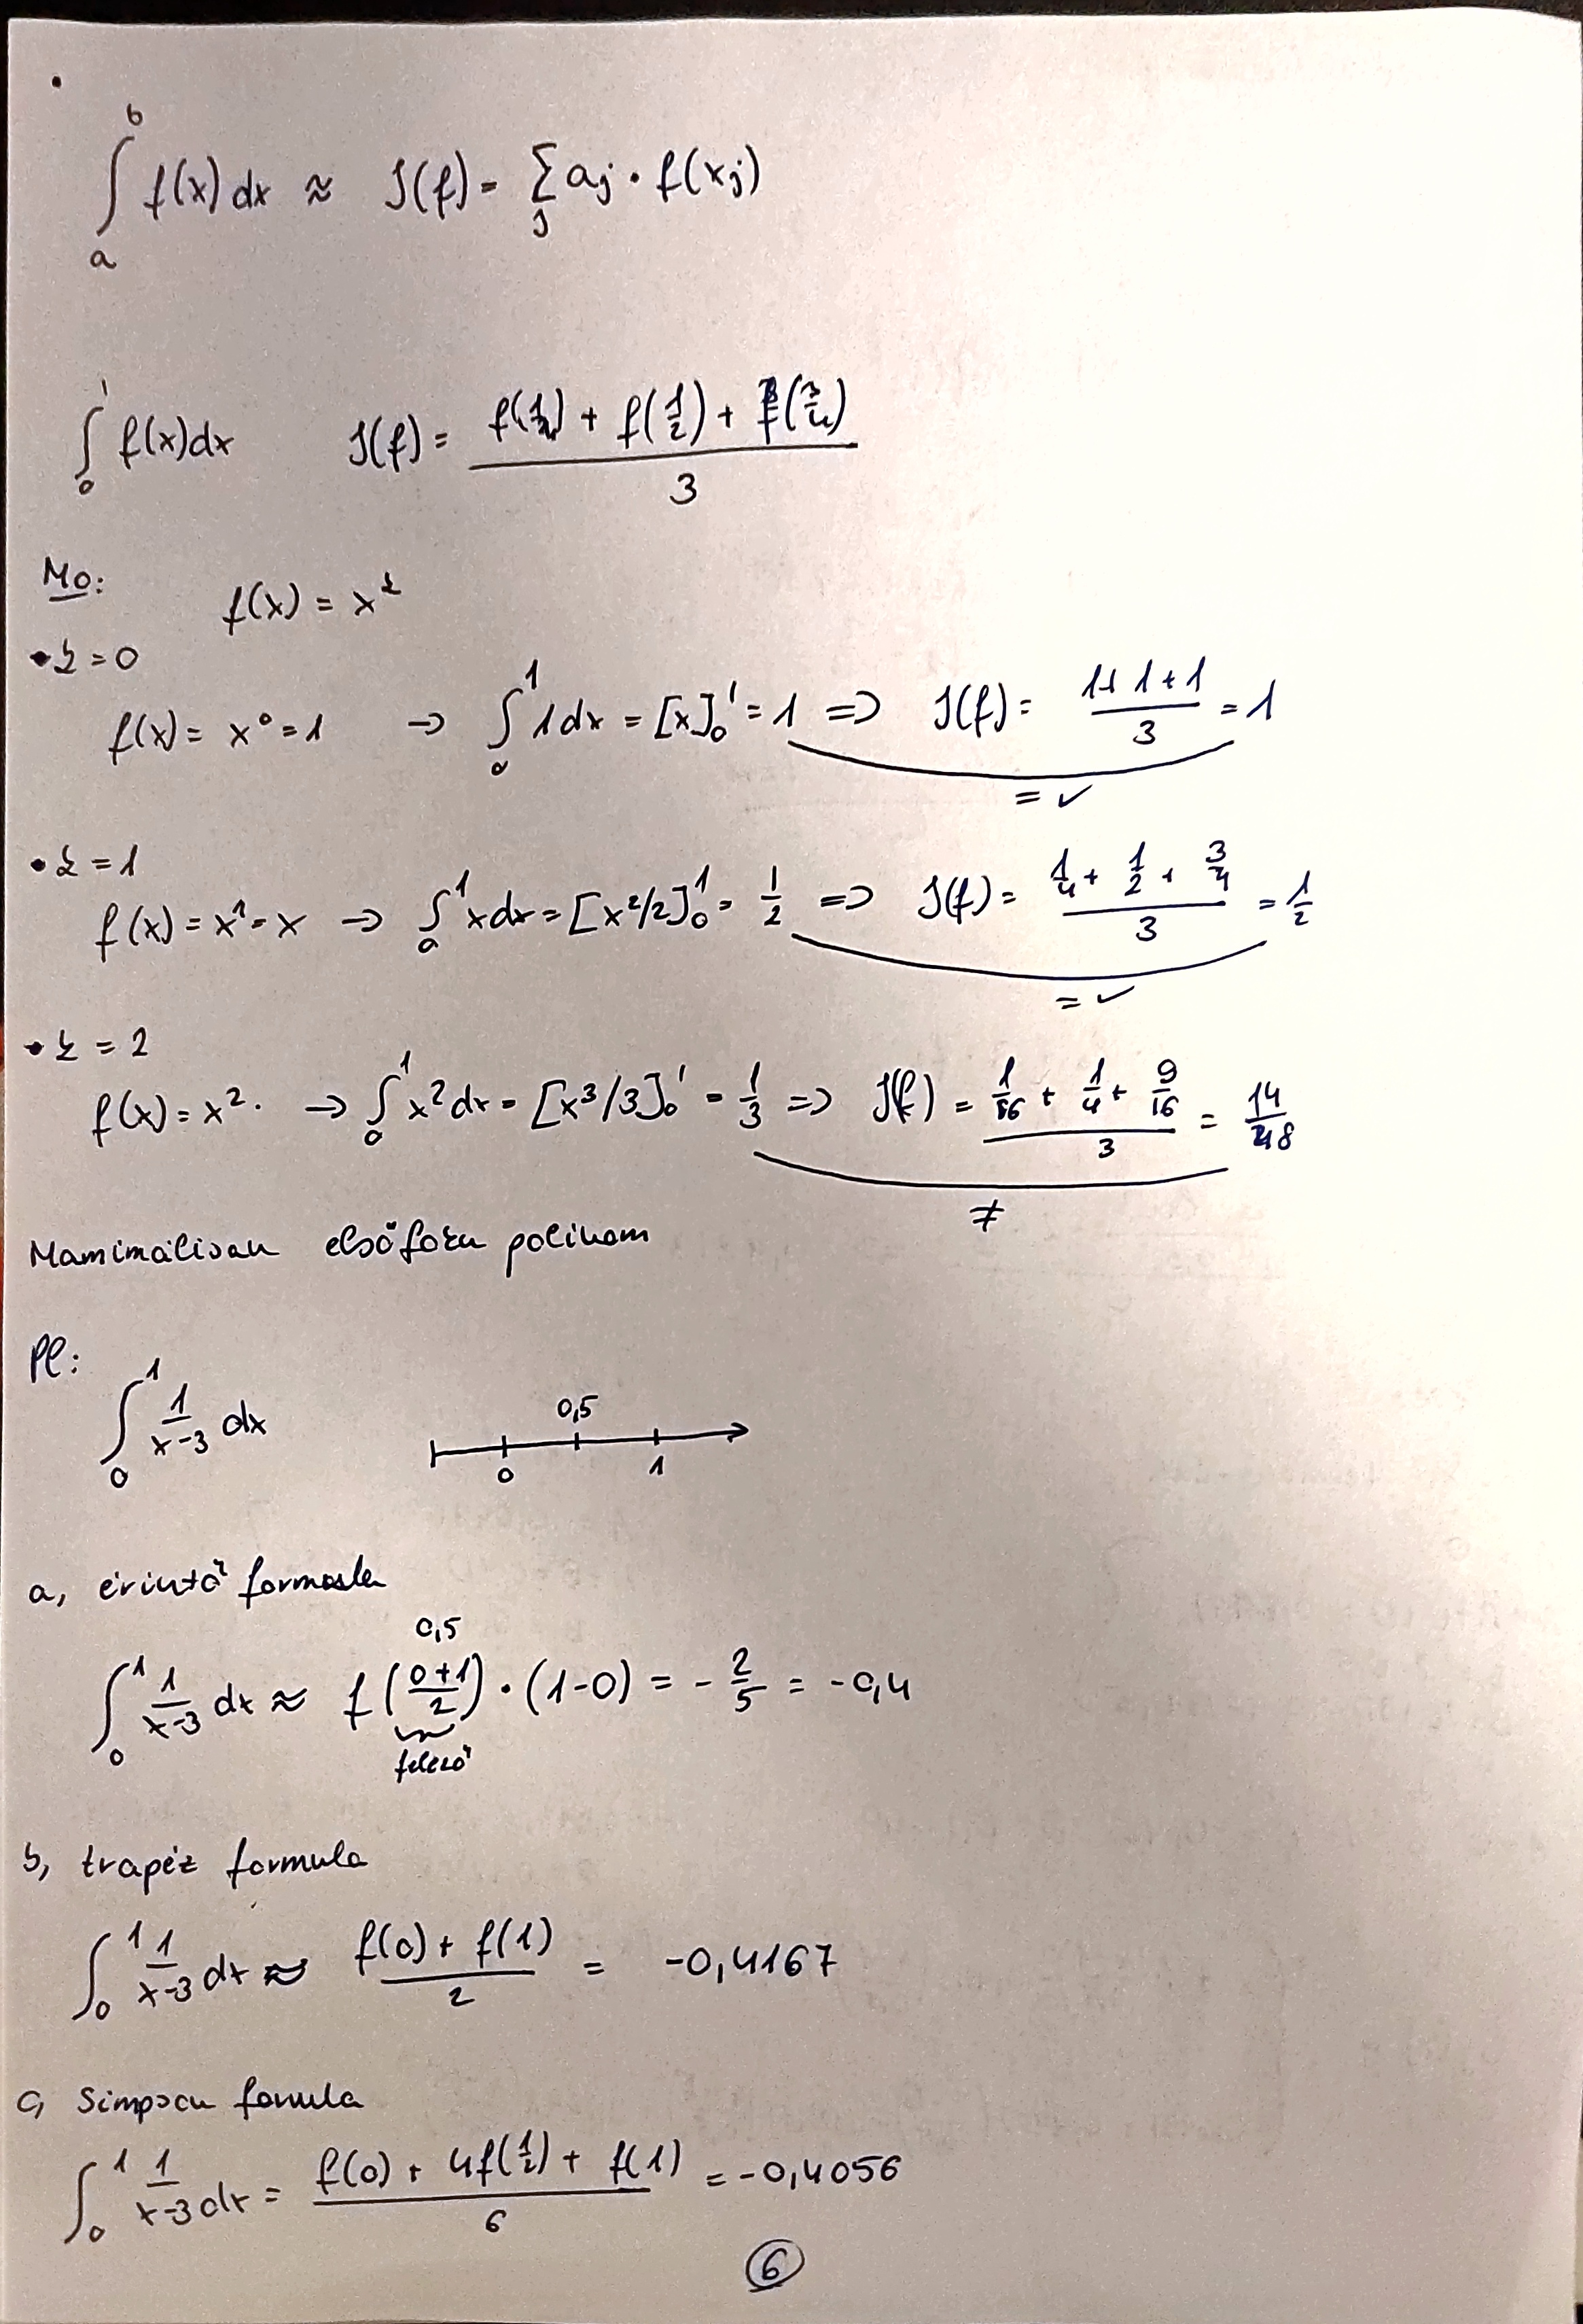 ∫_a^b f(x) dx ≈ I(f) = ∑_j a_j · f(x_j)
∫_0^1 f(x)dx I(f) = (f(1/4) + f(1/2) + f(3/4)) / 3
Mo:
f(x) = x^k
• k = 0
f(x) = x^0 = 1 → ∫_0^1 1 dx = [x]_0^1 = 1 => I(f) = (1 + 1 + 1)/3 = 1
= ✓
• k = 1
f(x) = x^1 = x → ∫_0^1 x dx = [x^2/2]_0^1 = 1/2 => I(f) = (1/4 + 1/2 + 3/4)/3 = 1/2
= ✓
• k = 2
f(x) = x^2. → ∫_0^1 x^2 dx = [x^3/3]_0^1 = 1/3 => I(f) = (1/16 + 1/4 + 9/16)/3 = 14/48
≠
Mamimálisan elsőfokú polinom
Pl:
∫_0^1 1/(x-3) dx
0,5
0 1
a, érintő formula
0,5
∫_0^1 1/(x-3) dx ≈ f((0+1)/2) · (1-0) = - 2/5 = -0,4
felező
b, trapéz formula
∫_0^1 1/(x-3) dx ≈ (f(0) + f(1))/2 = -0,4167
c, Simpson fomula
∫_0^1 1/(x-3) dx = (f(0) + 4f(1/2) + f(1))/6 = -0,4056
6